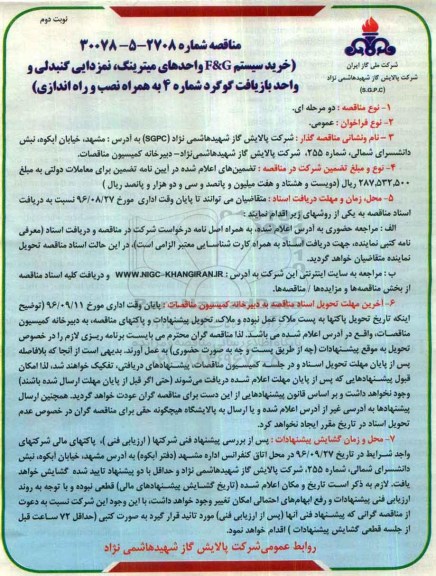 نوبت دوم
شرکت ملی گاز ایران
شرکت پالایش گاز شهیدهاشمی نژاد
(S.G.P.C)
مناقصه شماره ۲۷۰۸-۵-۳۰۰۷۸
(خرید سیستم F&G واحدهای میترینگ، نمزدایی گنبدلی و
واحد بازیافت گوگرد شماره ۴ به همراه نصب و راه اندازی)
۱- نوع مناقصه : دو مرحله ای.
۲- نوع فراخوان : عمومی.
۳- نام ونشانی مناقصه گذار : شرکت پالایش گاز شهیدهاشمی نژاد (SGPC) به آدرس : مشهد، خیابان آبکوه، نبش
دانشسرای شمالی، شماره ۲۵۵، شرکت پالایش گاز شهیدهاشمی نژاد- دبیرخانه کمیسیون مناقصات.
۴- نوع و مبلغ تضمین شرکت در مناقصه : تضمین‌های اعلام شده در آیین نامه تضمین برای معاملات دولتی به مبلغ
۲۸۷.۵۳۲.۵۰۰ ریال (دویست و هشتاد و هفت میلیون و پانصد و سی و دو هزار و پانصد ریال )
۵- محل زمان و مهلت دریافت اسناد : متقاضیان می توانند تا پایان وقت اداری مورخ ۹۶/۰۸/۲۷ نسبت به دریافت
اسناد مناقصه به یکی از روشهای زیر اقدام نمایند :
الف : مراجعه حضوری به آدرس اعلام شده، به همراه اصل نامه درخواست شرکت در مناقصه و دریافت اسناد (معرفی
نامه کتبی نماینده، جهت دریافت اسناد به همراه کارت شناسایی معتبر الزامی است)، در این حالت اسناد مناقصه تحویل
نماینده متقاضیان خواهد گردید.
ب : مراجعه به سایت اینترنتی این شرکت به آدرس : WWW.NIGC-KHANGIRAN.IR و دریافت کلیه اسناد مناقصه
از بخش مناقصه‌ها و مزایده‌ها / مناقصه‌ها.
۶- آخرین مهلت تحویل اسناد مناقصه به دبیرخانه کمیسیون مناقصات : پایان وقت اداری مورخ ۹۶/۰۹/۱۱ (توضیح
اینکه تاریخ تحویل پاکتها به پست ملاک عمل نبوده و ملاک، تحویل پیشنهادات و پاکتهای مناقصه، به دبیرخانه کمیسیون
مناقصات، واقع در آدرس اعلام شده می باشد. لذا مناقصه گران محترم می بایست برنامه ریزی لازم را در خصوص
تحویل به موقع پیشنهادات (چه از طریق پست و چه به صورت حضوری) به عمل آورند. بدیهی است از آنجا که بلافاصله
پس از پایان مهلت تحویل اسناد و در جلسه کمیسیون مناقصات، پیشنهادهای دریافتی، تفکیک خواهند شد، لذا امکان
قبول پیشنهادهایی که پس از پایان مهلت اعلام شده دریافت می‌شوند (حتی اگر قبل از پایان مهلت ارسال شده باشند)
وجود نداشت و بر اساس قانون پیشنهادهایی از این دست برای مناقصه گران عودت خواهد گردید. همچنین ارسال
پیشنهادها به آدرسی غیر از آدرس اعلام شده و یا ارسال به پالایشگاه هیچگونه حقی برای مناقصه گران در خصوص عدم
تحویل اسناد در تاریخ مقرر ایجاد نخواهد کرد.
۷- محل و زمان گشایش پیشنهادات : پس از بررسی پیشنهاد فنی شرکتها ( ارزیابی فنی )، پاکتهای مالی شرکتهای
واجد شرایط در تاریخ ۹۶/۰۹/۲۷ در محل اتاق کنفرانس اداره مشهد (دفتر آبکوه) به آدرس مشهد، خیابان آبکوه، نبش
دانشسرای شمالی، شماره ۲۵۵، شرکت پالایش گاز شهیدهاشمی نژاد و حداقل با دو پیشنهاد تایید شده گشایش خواهد
یافت. لازم به ذکر است تاریخ و مکان اعلام شده (تاریخ گشایش پیشنهادهای مالی) قطعی نبوده و با توجه به روند
ارزیابی فنی پیشنهادات و رفع ابهام‌های احتمالی امکان تغییر وجود خواهد داشت، با این وجود این شرکت نسبت به دعوت
از مناقصه گرانی که پیشنهاد فنی آنها (پس از ارزیابی فنی) مورد تائید قرار گیرد به صورت کتبی (حداقل ۷۲ ساعت قبل
از جلسه قطعی گشایش پیشنهادات ) اقدام خواهد نمود.
روابط عمومی شرکت پالایش گاز شهیدهاشمی نژاد